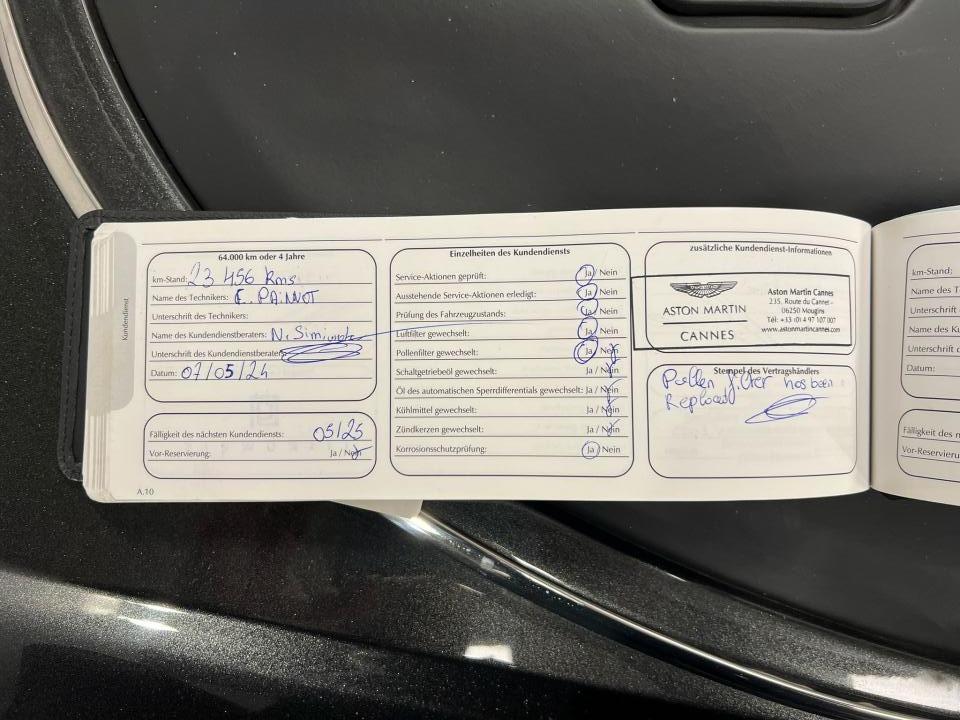 Kundendienst
64.000 km oder 4 Jahre
km-Stand: 23 456 kms
Name des Technikers: E. PAiNNOT
Unterschrift des Technikers:
Name des Kundendienstberaters: N.
Unterschrift des Kundendienstberaters
Datum: 07/05/24
Fälligkeit des nächsten Kundendiensts: 05/25
Vor-Reservierung: Ja / Nein
A.10
Einzelheiten des Kundendiensts
Service-Aktionen geprüft: Ja / Nein
Ausstehende Service-Aktionen erledigt: Ja / Nein
Prüfung des Fahrzeugzustands: Ja / Nein
Luftfilter gewechselt: Ja / Nein
Pollenfilter gewechselt: Ja / Nein
Schaltgetriebeöl gewechselt: Ja / Nein
Öl des automatischen Sperrdifferentials gewechselt: Ja / Nein
Kühlmittel gewechselt: Ja / Nein
Zündkerzen gewechselt: Ja / Nein
Korrosionsschutzprüfung: Ja / Nein
zusätzliche Kundendienst-Informationen
ASTON MARTIN
CANNES
Aston Martin Cannes
235, Route du Cannet -
06250 Mougins
Tél: +33 (0)4 97 107 007
www.astonmartincannes.com
Stempel des Vertragshändlers
Pollen filter has been
Replaced
km-Stand:
Name des T
Unterschrift
Name des Ku
Unterschrift d
Datum:
Fälligkeit des n
Vor-Reservieru